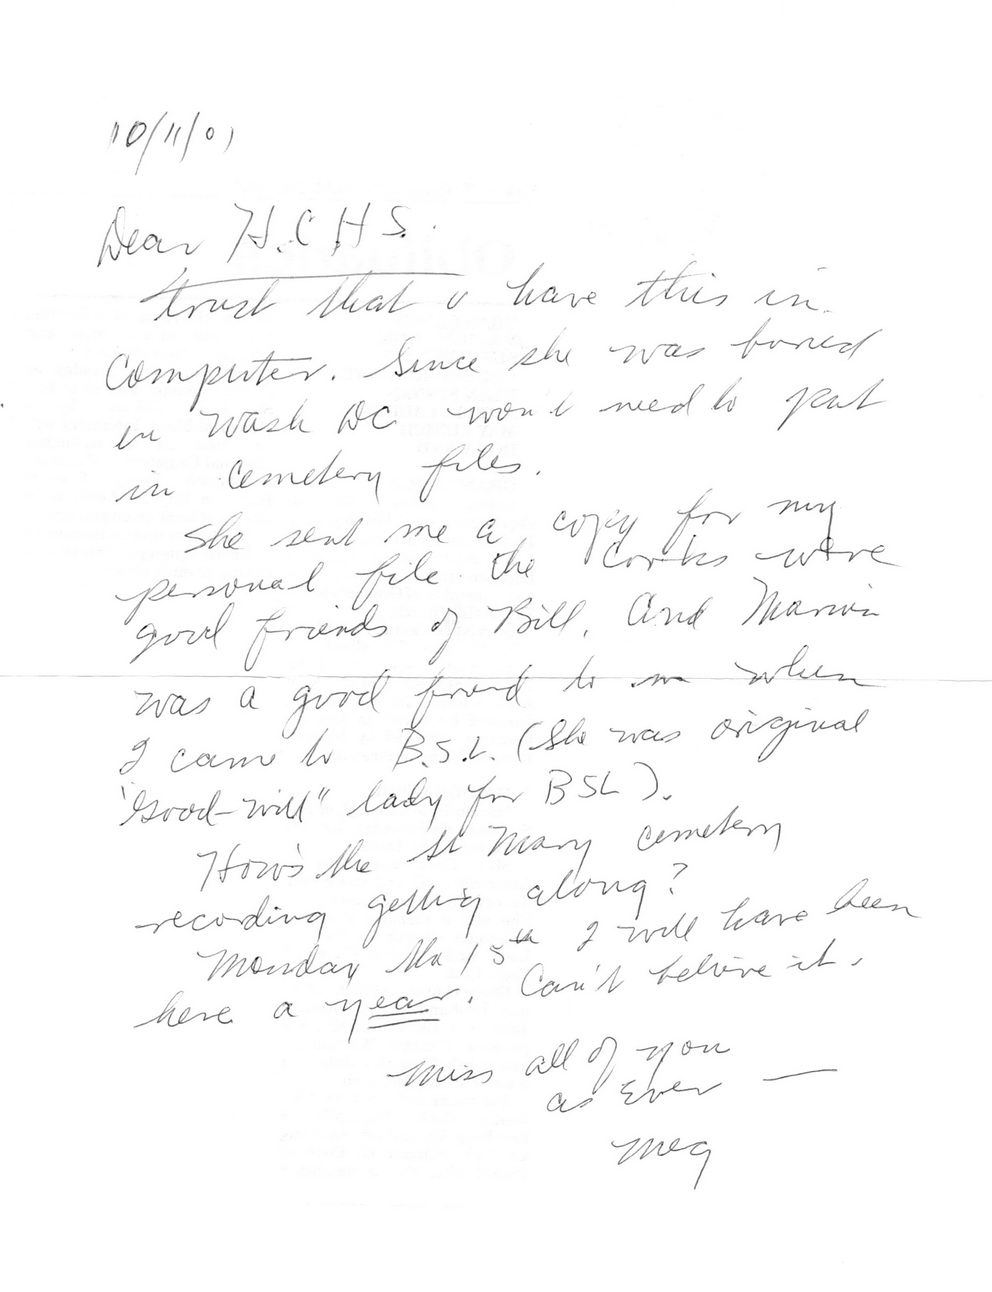 10/11/01
Dear H.C.H.S.
trust that u have this in
Computer. Since she was buried
in Wash DC won't need to put
in Cemetery files.
She sent me a copy for my
personal file. The were
good friends of Bill. And
was a good friend to me when
I came to B.S.L. (She was original
"Good-will" lady for BSL).
How's the St Mary cemetery
recording getting along?
Monday the 15th I will have been
here a year. Can't believe it.
Miss all of you
as Ever —
Meg